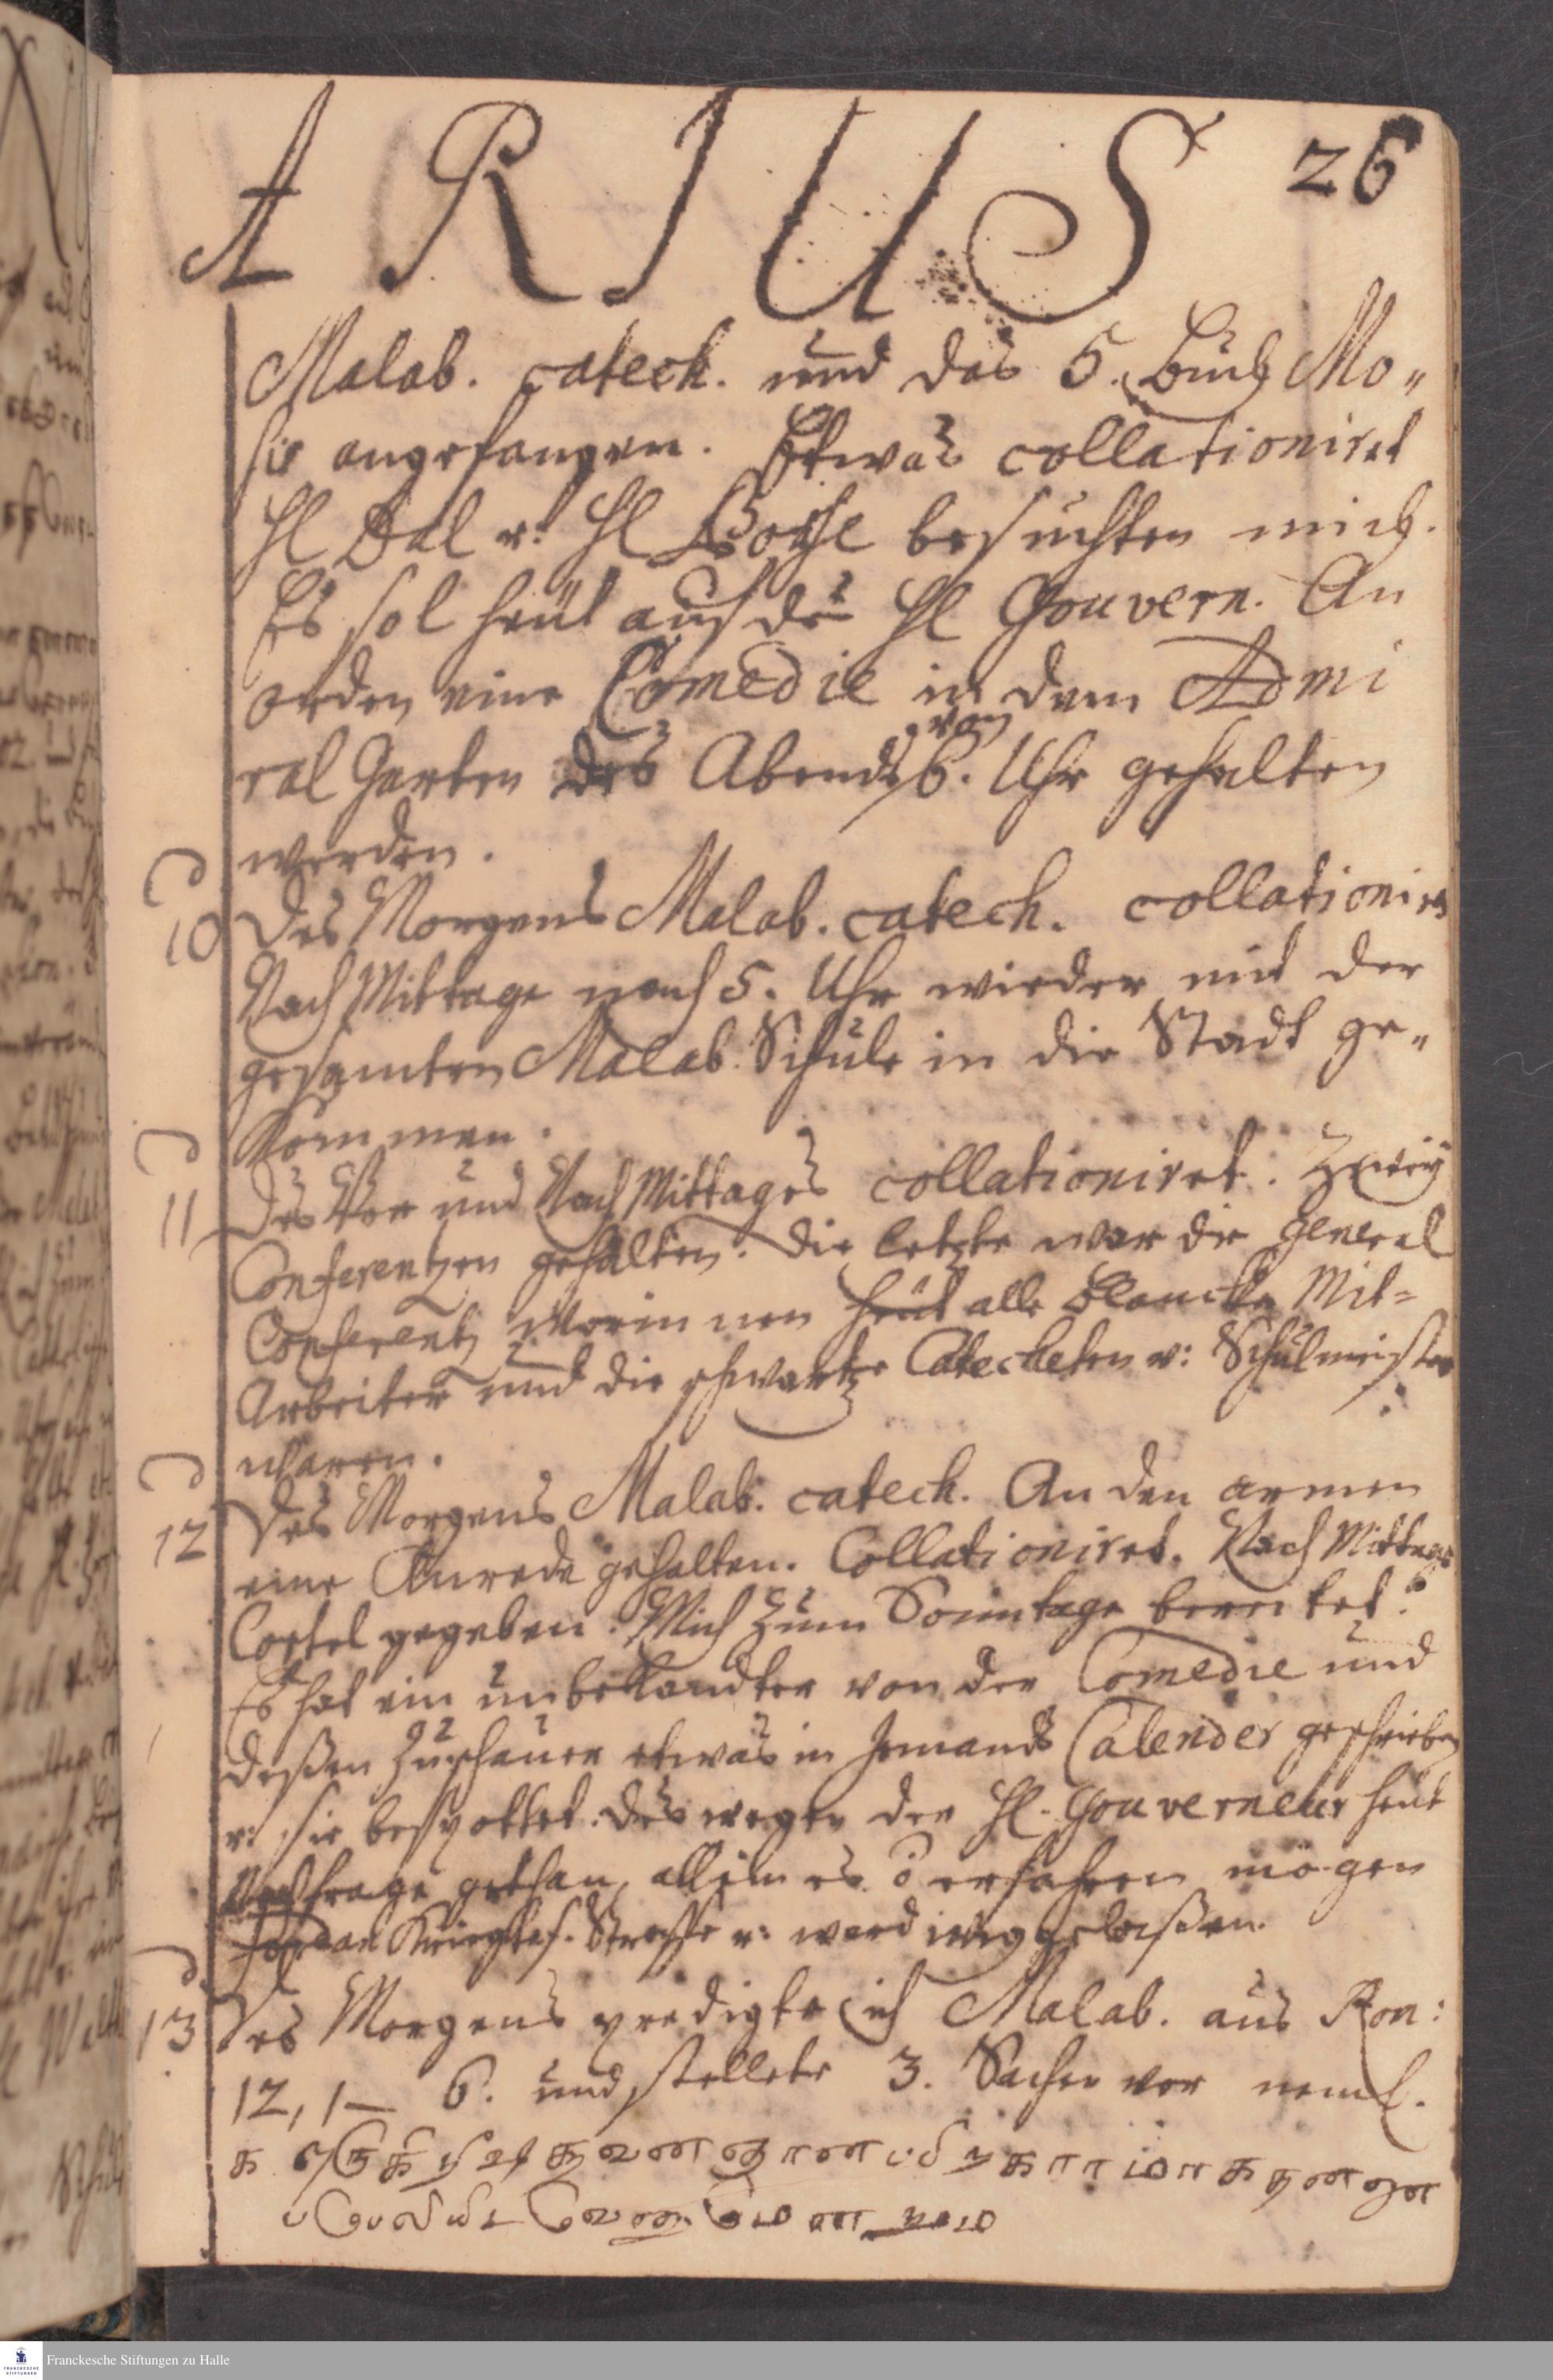 ARIUS 26
Malab. catech. und das 5. Buch Mo„
sis angefangen. Etwas collationiret
Hl Dal u: Hl Bosse besuchten mich.
Es sol heut auf des Hl Gouvern. An
orden eine Comedie in dem Admi
ral Garten des Abends von 6. Uhr gehalten
werden.
10 Des Morgens Malab. catech. collationiret
Nach Mittage nach 5. Uhr wieder mit der
gesamten Malab. Schule in die Stadt ge„
kommen.
11 Des Vor und Nach Mittages collationiret. Zwey
Conferentzen gehalten. Die letzte war die general
Conferentz Worinnen heut alle Blancke Mit=
Arbeiter und die schwartze Catecheten u: Schulmeister
waren.
12 Des Morgens Malab. catech. An den armen
eine Anrede gehalten. Collationiret. Nach Mittage
Costel gegeben. Mich zum Sonntage bereitet.
Es hat ein unbekandter von der Comedie und
deßen Zuschauer etwas in Jemands Calender geschrieben
u: sie bespottet. Deswegen der Hl. Gouverneur heut
Nachfrage gethan, allein es erfahren mögen
Strasse u: ward weggelaßen.
13 Des Morgens predigte ich Malab. aus Rom:
12, 1 — 6. und stellete 3. Sachen vor neml.